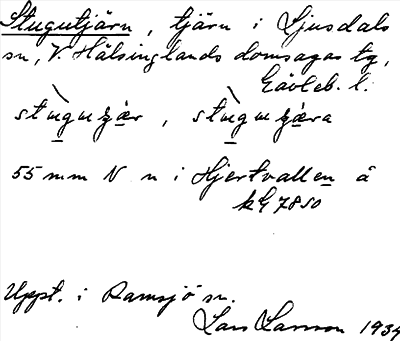 Stugutjärn, tjärn i Ljusdals
sn, V. Hälsinglands domsagas tg,
Gävleb. l.
55 mm N n i Hjertvallen å
kG 7850
Uppt. i Ramsjö sn.
Lars Larsson 1934